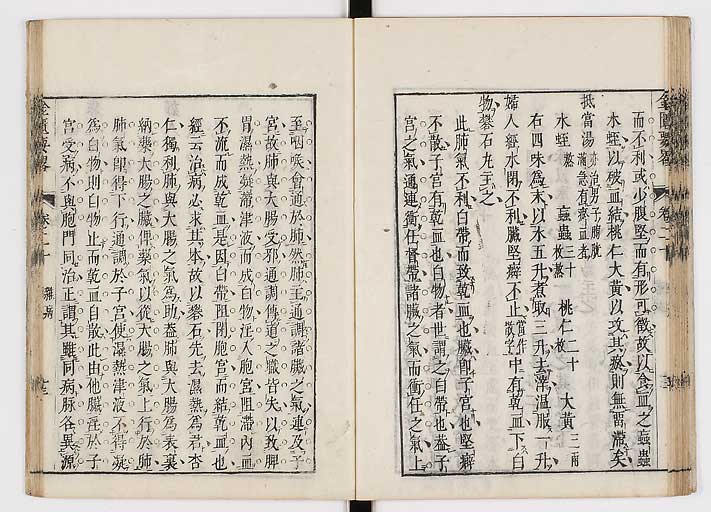 金匱要畧 卷二十
而不利或少腹堅而有形可徵故以食血之䖟蟲
水蛭以破血結桃仁大黃以攻其瘀則無畱滯矣
抵當湯 亦治男子膀胱滿急有瘀血者
水蛭 熬 䖟蟲 三十枚熬 桃仁 二十枚 大黃 三兩
右四味為末以水五升煮取三升去滓溫服一升
婦人經水閉不利臟堅癖不止 當作散字 中有乾血下白
物礬石丸主之
此肺氣不利白帶而致乾血也臟即子宮也堅癖
不散子宮有乾血也白物者世謂之白帶也蓋子
宮之氣通連衝任督帶諸臟之氣而衝任之氣上
至咽喉會通於肺然肺主通調諸臟之氣連及子
宮故肺與大腸受邪通調傳道之職皆失以致脾
胃濕熱凝滯津液而成白物注入胞宮阻滯內血
不流而成乾血是因白帶阻閉胞宮而結乾血也
經云治病必求其本故以礬石先去濕熱為君杏
仁獨利肺與大腸之氣為助蓋肺與大腸為表裏
納藥大腸之臟俾藥氣以從大腸之氣上行於肺
肺氣即得下行通調於子宮使濕熱津液不得凝
為白物則白物止而乾血自散此由他臟淫於子
宮受病不與胞門同治正謂其雖同病脉各異源
金匱要畧 卷二十 雜病 十三